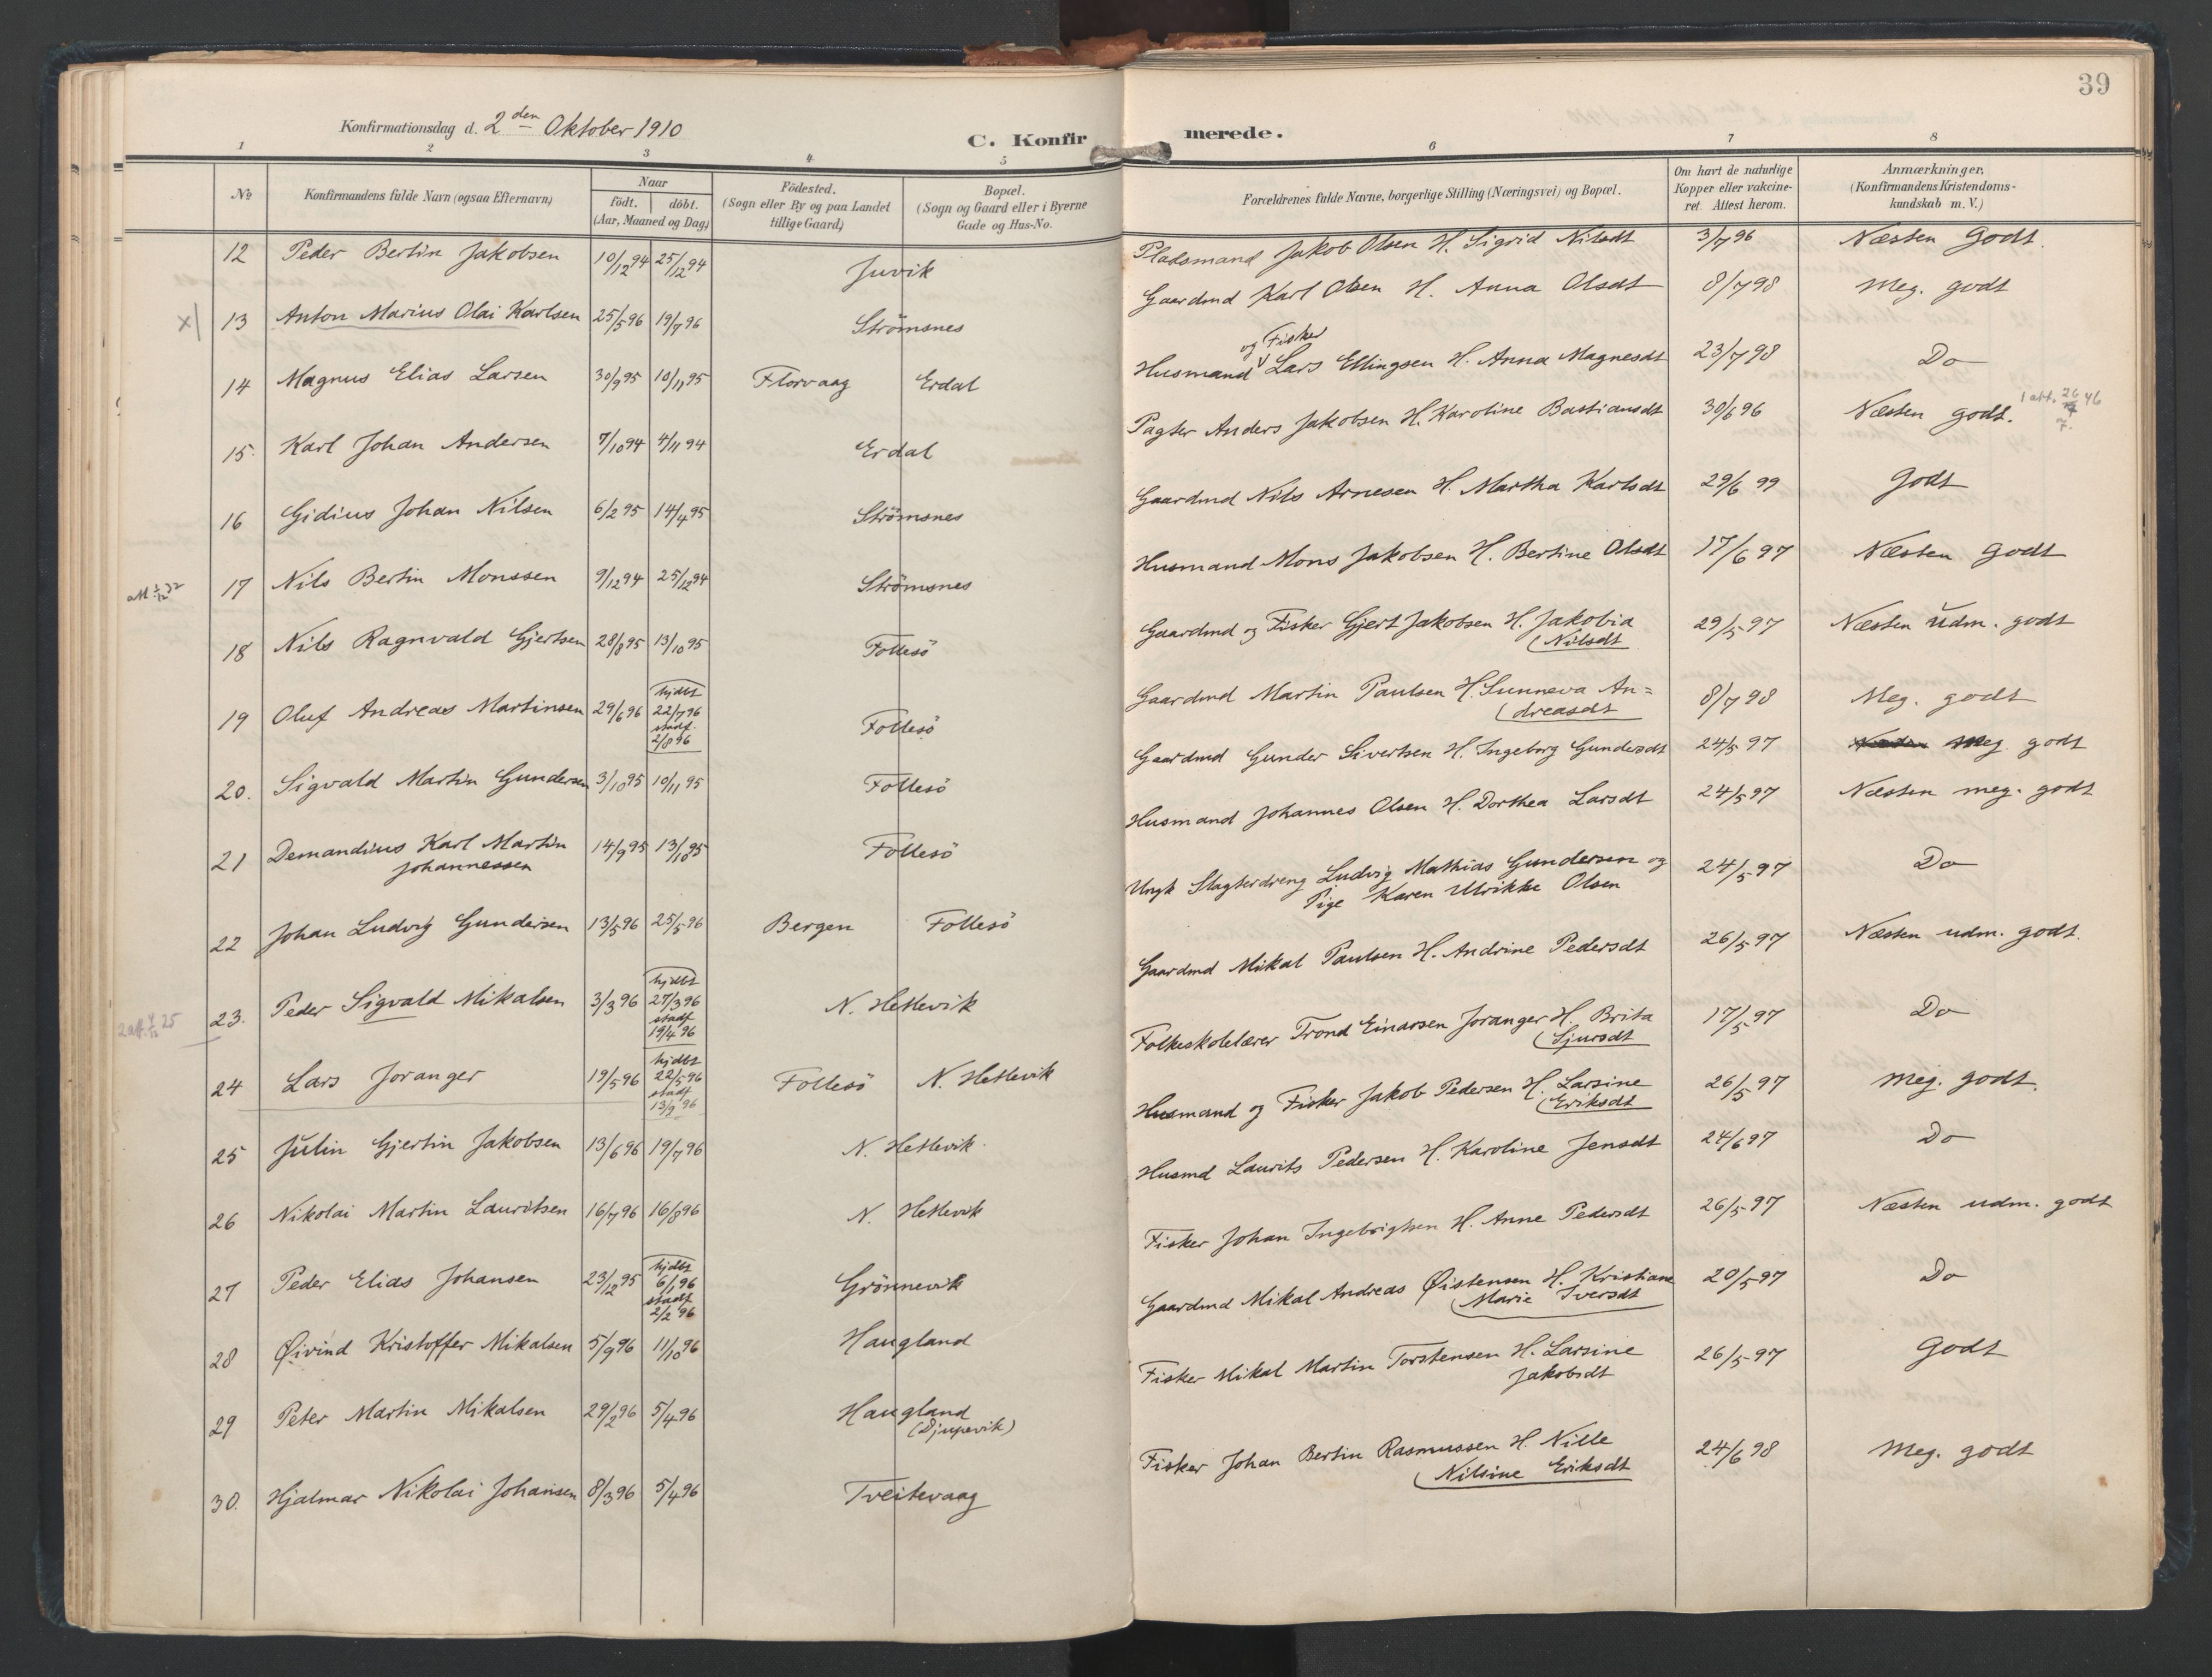 39
Konfirmationsdag d. 2den Oktober 1910
C. Konfirmerede.
1 2 3 4 5 6 7 8
No
Konfirmandens fulde Navn (ogsaa Efternavn)
Naar
födt. döbt.
(Aar, Maaned og Dag)
Födested.
(Sogn eller By og paa Landet
tillige Gaard)
Bopæl.
(Sogn og Gaard eller i Byerne
Gade og Hus-No.
Forældrenes fulde Navne, borgerlige Stilling (Næringsvei) og Bopæl.
Om havt de naturlige
Kopper eller vakcine-
ret. Attest herom.
Anmærkninger.
(Konfirmandens Kristendoms-
kundskab m. V.)
12 Peder Bertin Jakobsen 10/12 94 25/12 94 Juvik Pladsmand Jakob Olsen H. Sigrid Nilsdt 3/7 96 Næsten Godt.
x| 13 Anton Marius Olai Karlsen 25/5 96 19/7 96 Strömsnes Gaardmd Karl Olsen H. Anna Olsdt 8/7 98 Meg. godt
og Fisker
14 Magnus Elias Larsen 30/9 95 10/11 95 Florvaag Erdal Husmand Lars Ellingsen H. Anna Magnesdt 23/7 98 Do
15. Karl Johan Andersen 7/10 94 4/11 94 Erdal Pagter Anders Jakobsen H. Karoline Bastiansdt 30/6 96 Næsten godt. 1 att. 26/7 46
16 Gidius Johan Nilsen 6/2 95 14/4 95 Strömsnes Gaardmd Nils Arnesen H. Martha Karlsdt 29/6 99 Godt
att 1/12 32 17 Nils Bertin Monssen 9/12 94 25/12 94 Strömsnes Husmand Mons Jakobsen H. Bertine Olsdt 17/6 97 Næsten Godt
18 Nils Ragnvald Gjertsen 28/8 95 13/10 95 Follesö Gaardmd og Fisker Gjert Jakobsen H. Jakobia 29/5 97 Næsten udm. godt
Nilsdt
19 Oluf Andreas Martinsen 29/6 96 hjdbt 22/7 96 stadf. 2/8 96 Follesö Gaardmd Martin Paulsen H. Sunneva An=
dreasdt 8/7 98 Meg. godt
20. Sigvald Martin Gundersen 3/10 95 10/11 95 Follesö Gaardmd Gunder Sivertsen H. Ingeborg Gundersdt 24/5 97 Meg. godt
21 Demandius Karl Martin
Johannessen 14/9 95 13/10 95 Follesö Husmand Johannes Olsen H. Dorthea Larsdt 24/5 97 Næsten meg. godt
22 Johan Ludvig Gundersen 13/5 96 25/5 96 Bergen Follesö Ungk Slagterdreng Ludvig Mathias Gundersen og
Pige Karen Ulrikke Olsen 24/5 97 Do
2 att. 4/12 25 23. Peder Sigvald Mikalsen 3/3 96 hjdbt 27/3 96 stadf 19/4 96 N. Hetlevik Gaardmd Mikal Paulsen H. Andrine Pedersdt 26/5 97 Næsten udm. godt.
24 Lars Joranger 19/5 96 hjdbt 22/5 96 stadf 13/9 96 Follesö N. Hetlevik Folkeskolelærer Trond Einarsen Joranger H. Brita
Sjursdt 17/5 97 Do
25 Julin Gjertin Jakobsen 13/6 96 19/7 96 N. Hetlevik. Husmand og Fisker Jakob Pedersen H. Larsine
Eriksdt 26/5 97 Meg. godt.
26 Nikolai Martin Lauritsen 16/7 96 16/8 96 N. Hetlevik Husmd Laurits Pedersen H. Karoline Jensdt 24/6 97 Do
27 Peder Elias Johansen 23/12 95 hjdbt 6/1 96 stadf 2/2 96 Grönnevik Fisker Johan Ingebrigtsen H. Anne Pedersdt 26/5 97 Næsten udm. godt
28 Øivind Kristoffer Mikalsen 5/9 96 11/10 96 Haugland Gaardmd Mikal Andreas Øistensen H. Kristiane
Marie Iversdt 20/5 97 Do
29 Peter Martin Mikalsen 29/2 96 5/4 96 Haugland
(Djupevik) Fisker Mikal Martin Torstensen H. Larsine
Jakobsdt 26/5 97 Godt
30. Hjalmar Nikolai Johansen 8/3 96 5/4 96 Tveitevaag Fisker Johan Bertin Rasmussen H. Nille
Nilsine Eriksdt 24/6 98 Meg. godt